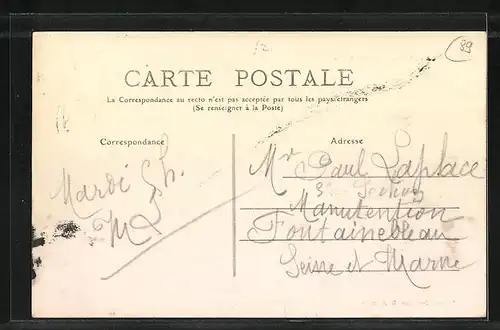 89
CARTE POSTALE
La Correspondance au recto n'est pas acceptée par tous les pays étrangers
(Se renseigner à la Poste)
Correspondance
Adresse
Mardi 5h.
ML
Mr Paul Laplace
3e Section
Manutention
Fontainebleau
Seine et Marne